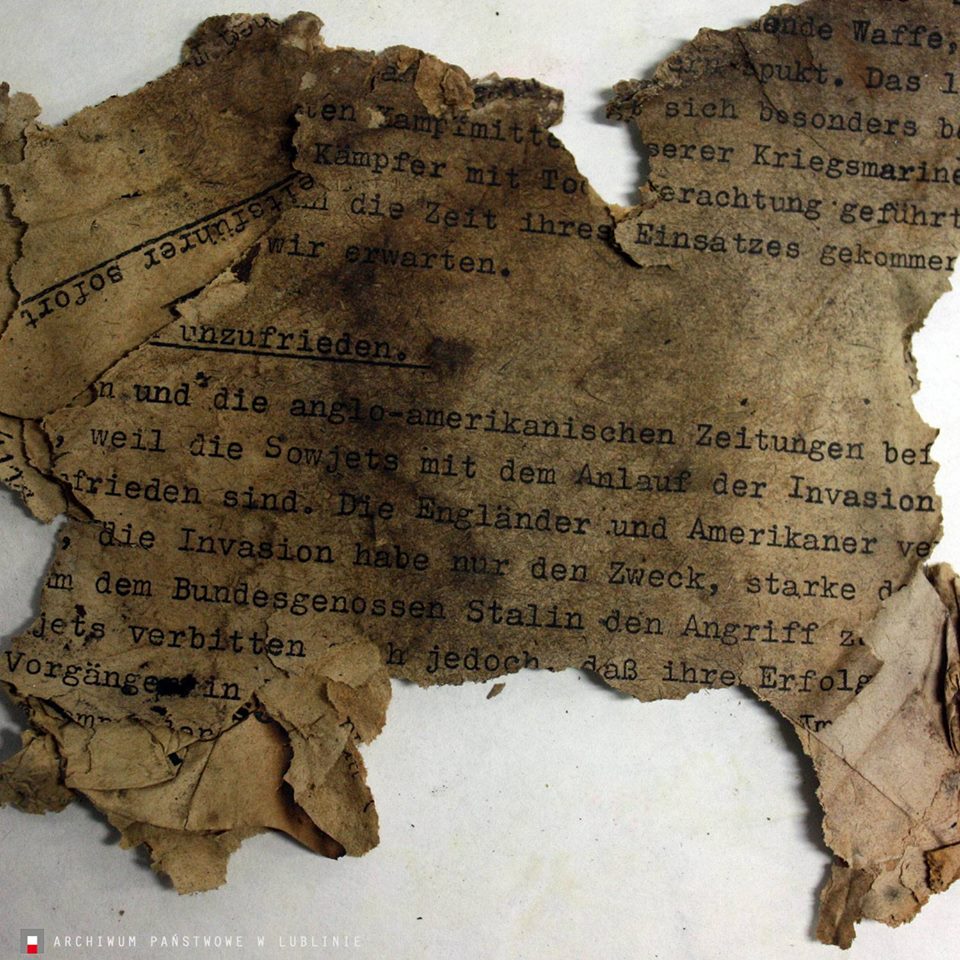 ende Waffe,
spukt. Das l
sich besonders b
ten Kampfmitte
serer Kriegsmarine
Kämpfer mit To
erachtung geführt
in die Zeit ihres Einsatzes gekommen
wir erwarten.
eitsführer sofort
unzufrieden.
n und die anglo-amerikanischen Zeitungen bei
, weil die Sowjets mit dem Anlauf der Invasion
frieden sind. Die Engländer und Amerikaner ve
, die Invasion habe nur den Zweck, starke d
m dem Bundesgenossen Stalin den Angriff z
jets verbitten h jedoch, daß ihre Erfolg
Vorgänge in
ARCHIWUM PAŃSTWOWE W LUBLINIE